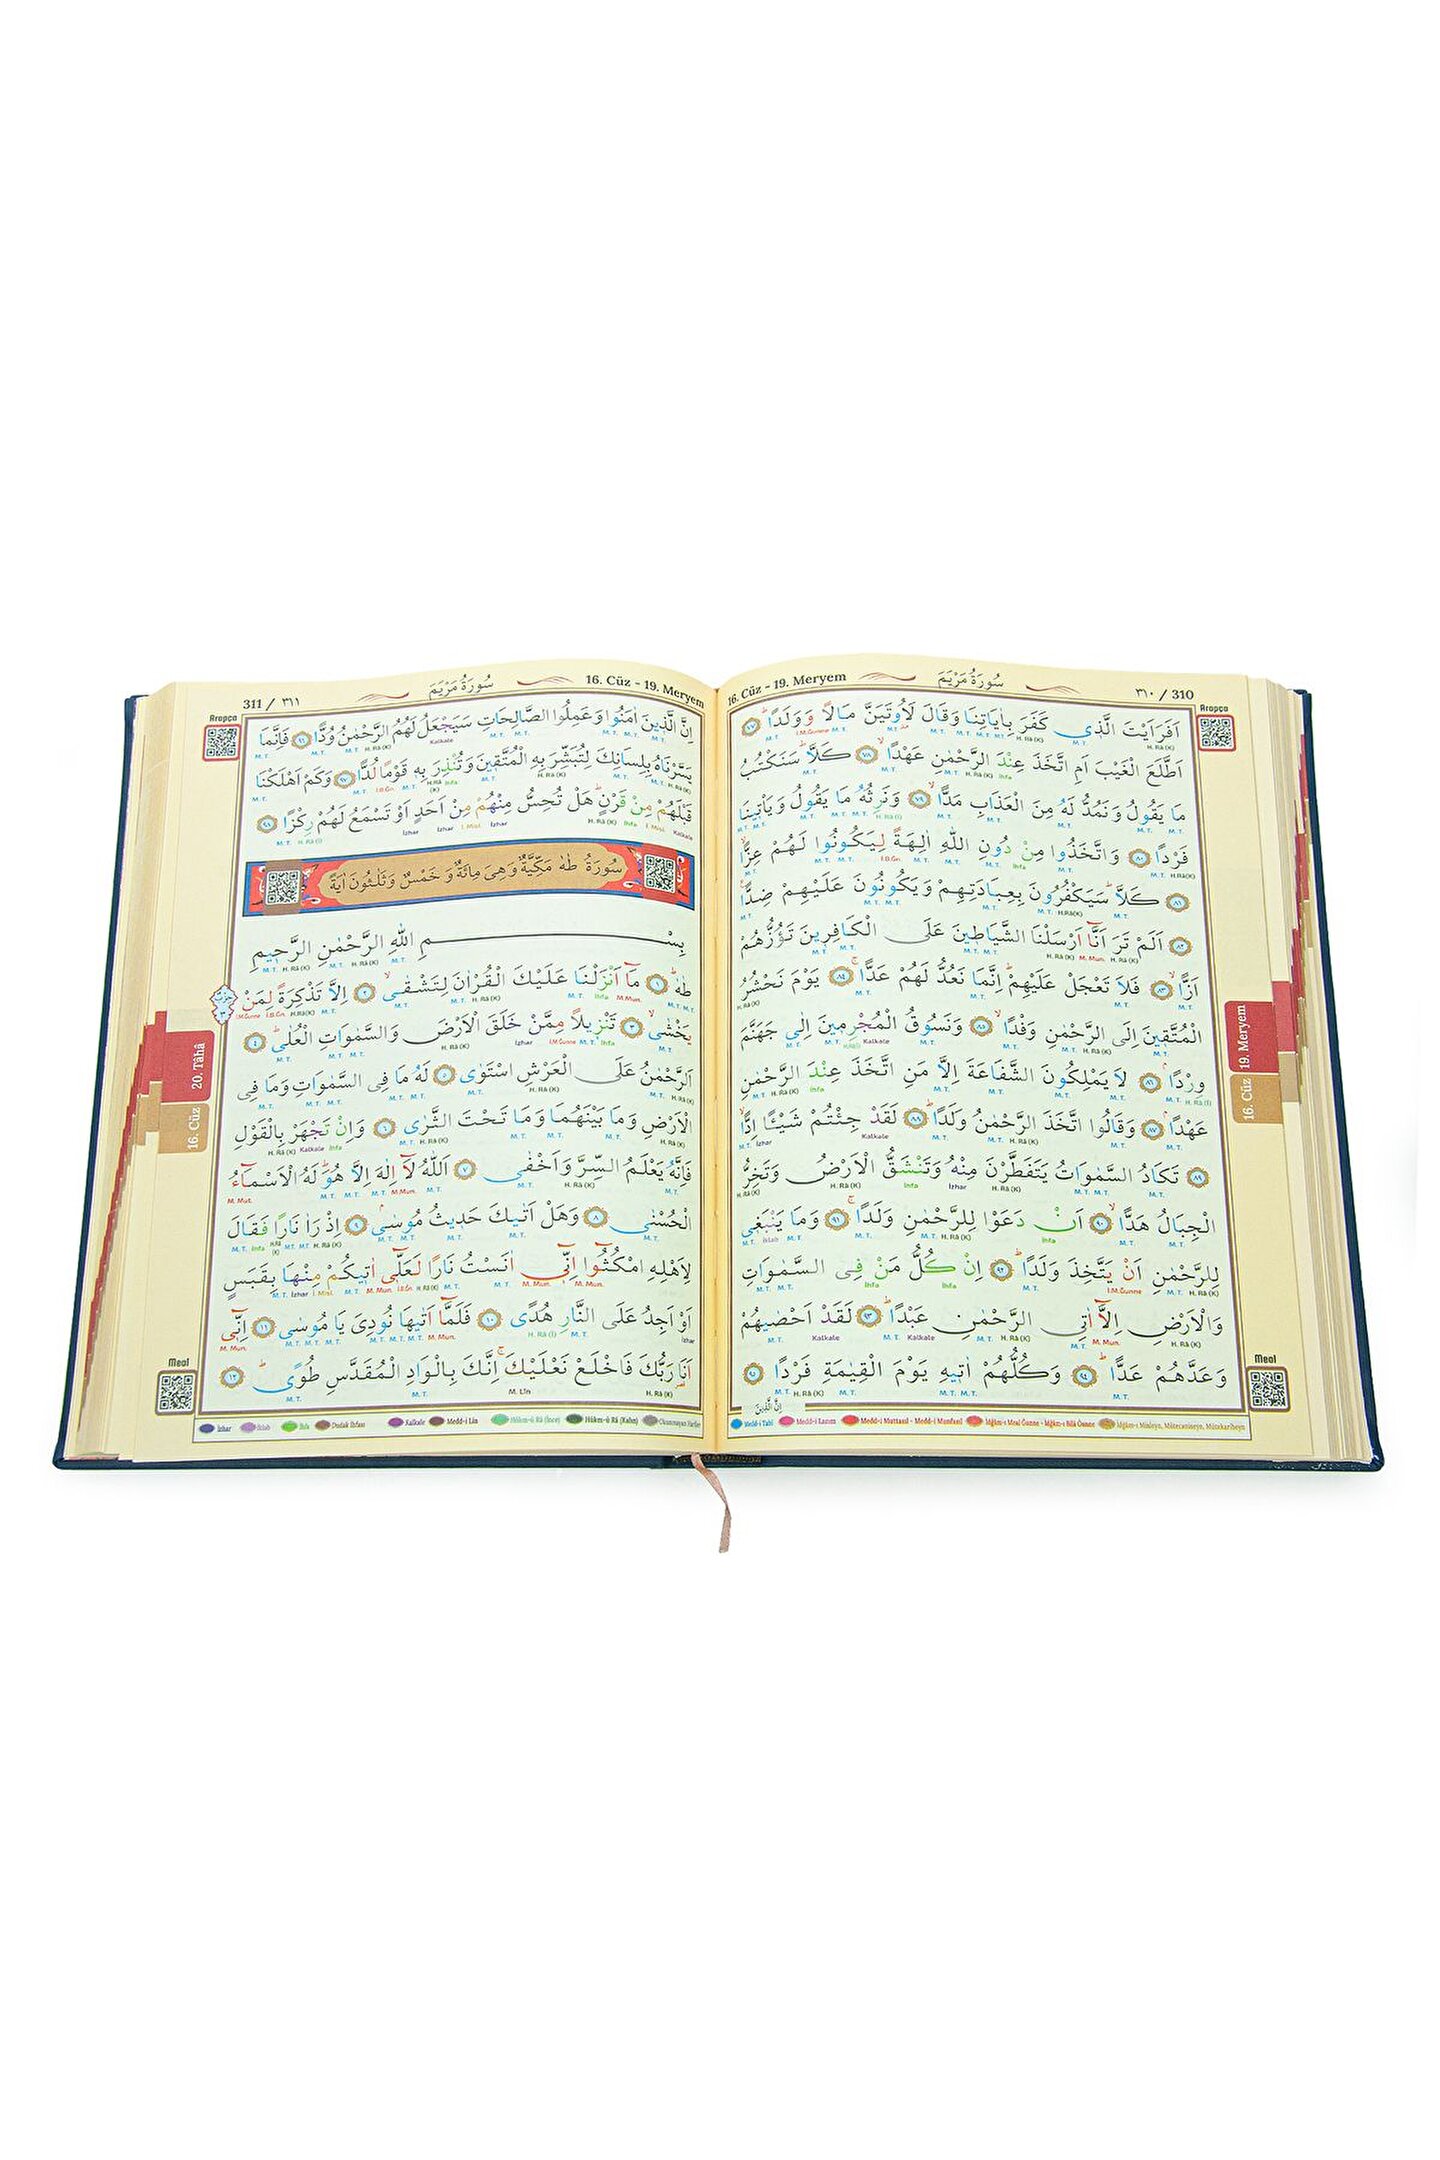 ٣١٠ / 310
سُورَةُ مَرْيَمَ
16. Cüz - 19. Meryem
Arapça
اَفَرَاَيْتَ الَّذ۪ي كَفَرَ بِاٰيَاتِنَا وَقَالَ لَاُو۫تَيَنَّ مَالًا وَوَلَدًاۜ ﴿٧٧﴾
اَطَّلَعَ الْغَيْبَ اَمِ اتَّخَذَ عِنْدَ الرَّحْمٰنِ عَهْدًاۙ ﴿٧٨﴾ كَلَّاۜ سَنَكْتُبُ
مَا يَقُولُ وَنَمُدُّ لَهُ مِنَ الْعَذَابِ مَدًّاۙ ﴿٧٩﴾ وَنَرِثُهُ مَا يَقُولُ وَيَأْت۪ينَا
فَرْدًا ﴿٨٠﴾ وَاتَّخَذُوا مِنْ دُونِ اللّٰهِ اٰلِهَةً لِيَكُونُوا لَهُمْ عِزًّاۙ
﴿٨١﴾ كَلَّاۜ سَيَكْفُرُونَ بِعِبَادَتِهِمْ وَيَكُونُونَ عَلَيْهِمْ ضِدًّا۟
﴿٨٢﴾ اَلَمْ تَرَ اَنَّٓا اَرْسَلْنَا الشَّيَاط۪ينَ عَلَى الْكَافِر۪ينَ تَؤُزُّهُمْ
اَزًّاۙ ﴿٨٣﴾ فَلَا تَعْجَلْ عَلَيْهِمْۜ اِنَّمَا نَعُدُّ لَهُمْ عَدًّاۚ ﴿٨٤﴾ يَوْمَ نَحْشُرُ
الْمُتَّق۪ينَ اِلَى الرَّحْمٰنِ وَفْدًاۙ ﴿٨٥﴾ وَنَسُوقُ الْمُجْرِم۪ينَ اِلٰى جَهَنَّمَ
وِرْدًاۢ ﴿٨٦﴾ لَا يَمْلِكُونَ الشَّفَاعَةَ اِلَّا مَنِ اتَّخَذَ عِنْدَ الرَّحْمٰنِ
عَهْدًاۢ ﴿٨٧﴾ وَقَالُوا اتَّخَذَ الرَّحْمٰنُ وَلَدًاۜ ﴿٨٨﴾ لَقَدْ جِئْتُمْ شَيْـًٔا اِدًّاۙ
﴿٨٩﴾ تَكَادُ السَّمٰوَاتُ يَتَفَطَّرْنَ مِنْهُ وَتَنْشَقُّ الْاَرْضُ وَتَخِرُّ
الْجِبَالُ هَدًّاۙ ﴿٩٠﴾ اَنْ دَعَوْا لِلرَّحْمٰنِ وَلَدًاۚ ﴿٩١﴾ وَمَا يَنْبَغ۪ي
لِلرَّحْمٰنِ اَنْ يَتَّخِذَ وَلَدًاۜ ﴿٩٢﴾ اِنْ كُلُّ مَنْ فِي السَّمٰوَاتِ
وَالْاَرْضِ اِلَّٓا اٰتِي الرَّحْمٰنِ عَبْدًاۜ ﴿٩٣﴾ لَقَدْ اَحْصٰيهُمْ
وَعَدَّهُمْ عَدًّاۜ ﴿٩٤﴾ وَكُلُّهُمْ اٰت۪يهِ يَوْمَ الْقِيٰمَةِ فَرْدًا ﴿٩٥﴾
اِنَّ الَّذ۪ينَ
19. Meryem
16. Cüz
Meal
Medd-i Tabî Medd-i Lazım Medd-i Muttasıl - Medd-i Munfasıl İdğam-ı Meal Ğunne - İdğam-ı Bilâ Ğunne İdğam-ı Misleyn, Mütecaniseyn, Mütekaribeyn
16. Cüz - 19. Meryem
سُورَةُ مَرْيَمَ
311 / ٣١١
Arapça
اِنَّ الَّذ۪ينَ اٰمَنُوا وَعَمِلُوا الصَّالِحَاتِ سَيَجْعَلُ لَهُمُ الرَّحْمٰنُ وُدًّا ﴿٩٦﴾ فَاِنَّمَا
يَسَّرْنَاهُ بِلِسَانِكَ لِتُبَشِّرَ بِهِ الْمُتَّق۪ينَ وَتُنْذِرَ بِه۪ قَوْمًا لُدًّا ﴿٩٧﴾ وَكَمْ اَهْلَكْنَا
قَبْلَهُمْ مِنْ قَرْنٍۜ هَلْ تُحِسُّ مِنْهُمْ مِنْ اَحَدٍ اَوْ تَسْمَعُ لَهُمْ رِكْزًا ﴿٩٨﴾
سُورَةُ طٰهٰ مَكِّيَّةٌ وَهِيَ مِائَةٌ وَ خَمْسٌ وَثَلٰثُونَ اٰيَةً
بِسْمِ اللّٰهِ الرَّحْمٰنِ الرَّح۪يمِ
طٰهٰۜ ﴿١﴾ مَٓا اَنْزَلْنَا عَلَيْكَ الْقُرْاٰنَ لِتَشْقٰىۙ ﴿٢﴾ اِلَّا تَذْكِرَةً لِمَنْ
يَخْشٰىۙ ﴿٣﴾ تَنْز۪يلًا مِمَّنْ خَلَقَ الْاَرْضَ وَالسَّمٰوَاتِ الْعُلٰىۜ ﴿٤﴾
اَلرَّحْمٰنُ عَلَى الْعَرْشِ اسْتَوٰى ﴿٥﴾ لَهُ مَا فِي السَّمٰوَاتِ وَمَا فِي
الْاَرْضِ وَمَا بَيْنَهُمَا وَمَا تَحْتَ الثَّرٰى ﴿٦﴾ وَاِنْ تَجْهَرْ بِالْقَوْلِ
فَاِنَّهُ يَعْلَمُ السِّرَّ وَاَخْفٰى ﴿٧﴾ اَللّٰهُ لَٓا اِلٰهَ اِلَّا هُوَۜ لَهُ الْاَسْمَٓاءُ
الْحُسْنٰى ﴿٨﴾ وَهَلْ اَتٰيكَ حَد۪يثُ مُوسٰىۢ ﴿٩﴾ اِذْ رَاٰ نَارًا فَقَالَ
لِاَهْلِهِ امْكُثُٓوا اِنّ۪ٓي اٰنَسْتُ نَارًا لَعَلّ۪ٓي اٰت۪يكُمْ مِنْهَا بِقَبَسٍ
اَوْ اَجِدُ عَلَى النَّارِ هُدًى ﴿١٠﴾ فَلَمَّٓا اَتٰيهَا نُودِيَ يَا مُوسٰى ﴿١١﴾ اِنّ۪ٓي
اَنَا رَبُّكَ فَاخْلَعْ نَعْلَيْكَۚ اِنَّكَ بِالْوَادِ الْمُقَدَّسِ طُوًىۜ ﴿١٢﴾
20. Tâhâ
16. Cüz
Meal
İzhar İklab İhfa Dudak İhfası Kalkale Medd-i Lin Hükm-ü Râ (İnce) Hükm-ü Râ (Kalın) Okunmayan Harfler